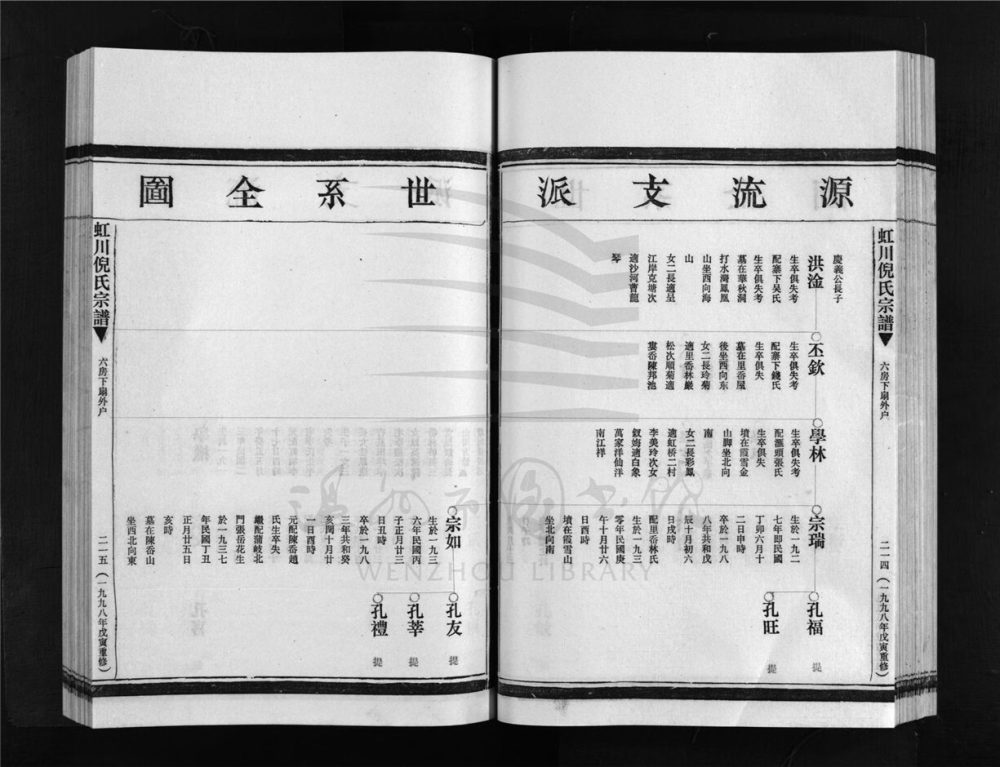 源流支派
世系全圖
虹川倪氏宗譜
六房下扇外户
二一四(一九九八年戊寅重修)
慶義公長子
洪淦
生卒俱失考
配寨下吴氏
生卒俱失考
墓在華秋洞
打水灣鳳凰
山坐西向海
山
女二長適呈
江岸克塘次
適沙河曹龍
琴
丕欽
生卒俱失考
配寨下錢氏
生卒俱失
墓在里岙屋
後坐西向东
女二長玲菊
適里岙林嚴
松次順菊適
婁岙陳邦池
學林
生卒俱失考
配滙頭張氏
生卒俱失
墳在霞雪金
山脚坐北向
南
女二長彩鳳
適虹桥二村
李美玲次女
釵姆適白象
萬家洋仙洋
南江祥
宗瑞
生於一九二
七年即民國
丁卯六月十
二日申時
卒於一九八
八年共和戊
辰十月初六
日戌時
配里岙林氏
生於一九三
零年民國庚
午十月廿六
日酉時
墳在霞雪山
坐北向南
孔福
提
孔旺
提
宗如
生於一九三
六年民國丙
子正月廿三
日丑時
卒於一九八
三年共和癸
亥閏十月廿
一日酉時
元配陳岙趙
氏生卒失
繼配蒲岐北
門張岳花生
於一九三七
年民國丁丑
正月廿五日
亥時
墓在陳岙山
坐西北向東
孔友
提
孔莘
提
孔禮
提
虹川倪氏宗譜
六房下扇外户
二一五(一九九八年戊寅重修)
WENZHOU LIBRARY